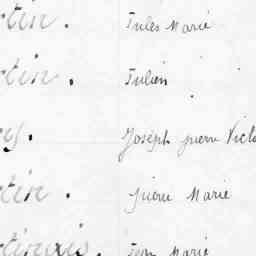 tin. Jules Marie
tin. Julien
y. Joseph pierre Victo
tin. pierre Marie
tinais. Jean Marie